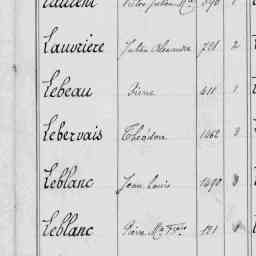 Laurent Victor Julien Mie 390 1
Lauvriere Julien Alexandre 721 2
Lebeau Pierre 411 1
Lebervais Théodore 1062 3
Leblanc Jean Louis 1490 3
Leblanc Pierre Mie Frois 121 8